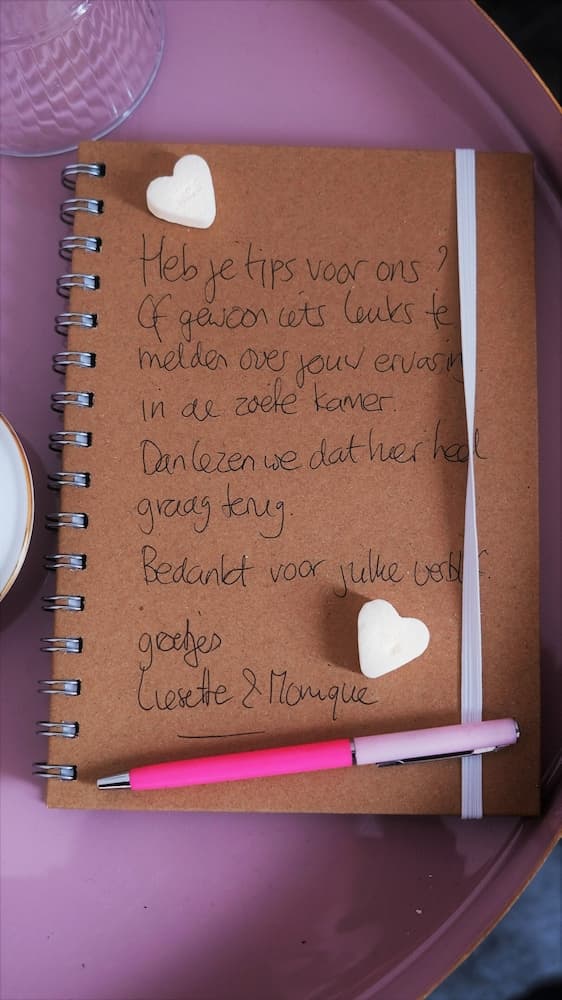 Heb je tips voor ons?
Of gewoon iets leuks te
melden over jouw ervaring
in de zoete kamer.
Dan lezen we dat hier heel
graag terug.
Bedankt voor jullie verblijf.
groetjes
Liesette & Monique